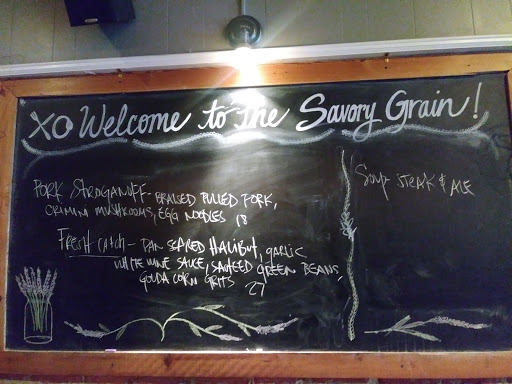 XO Welcome to the Savory Grain!
PORK STROGANOFF - BRAISED PULLED PORK,
CRIMINI MUSHROOMS, EGG NOODLES 18
FRESH CATCH - PAN SEARED HALIBUT, GARLIC
WHITE WINE SAUCE, SAUTEED GREEN BEANS,
GOUDA CORN GRITS 27
Soup STEAK & ALE